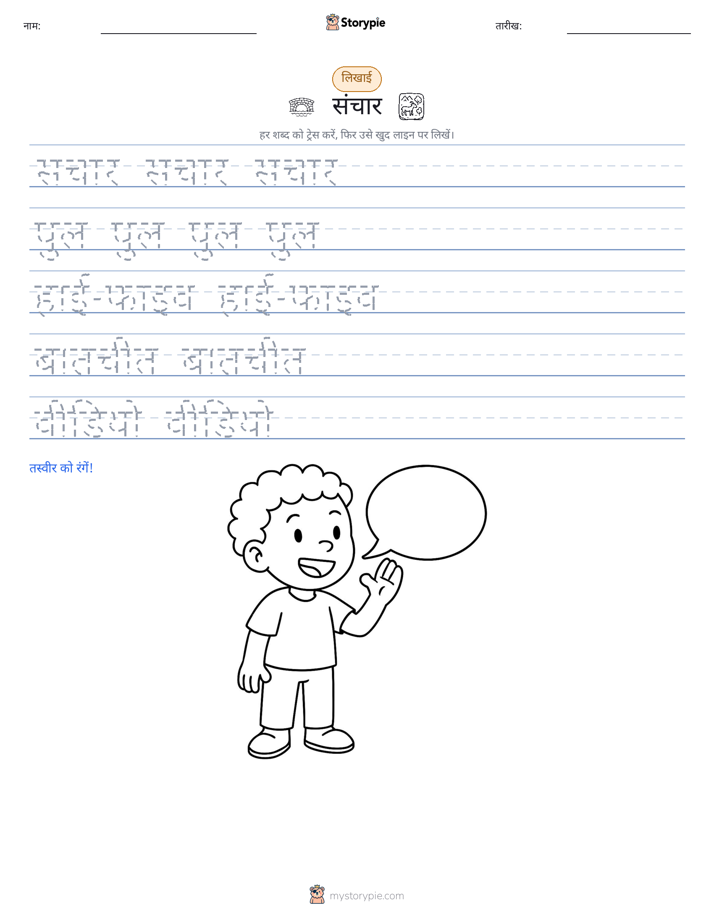 नाम:
Storypie
तारीख:
लिखाई
संचार
हर शब्द को ट्रेस करें, फिर उसे खुद लाइन पर लिखें।
संचार संचार संचार
पुल पुल पुल पुल
हाई-फाइव हाई-फाइव
बातचीत बातचीत
वीडियो वीडियो
तस्वीर को रंगें!
mystorypie.com